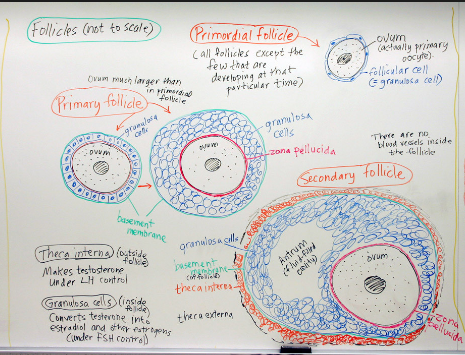 Follicles (not to scale)
Primordial follicle
(all follicles except the
few that are
developing at that
particular time)
ovum
(actually primary
oocyte)
follicular cell
(= granulosa cell)
Ovum much larger than
in primordial
follicle
Primary follicle
granulosa
cells
ovum
ovum
granulosa
cells
zona pellucida
basement
membrane
There are no
blood vessels inside
the follicle
Secondary follicle
granulosa cells
basement
membrane
(of follicle)
theca interna
theca externa
Antrum
(fluid-filled
cavity)
ovum
zona
pellucida
Theca interna (outside
follicle)
Makes testosterone
under LH control
Granulosa cells (inside
follicle)
Converts testerone into
estradiol and other estrogens
(under FSH control)